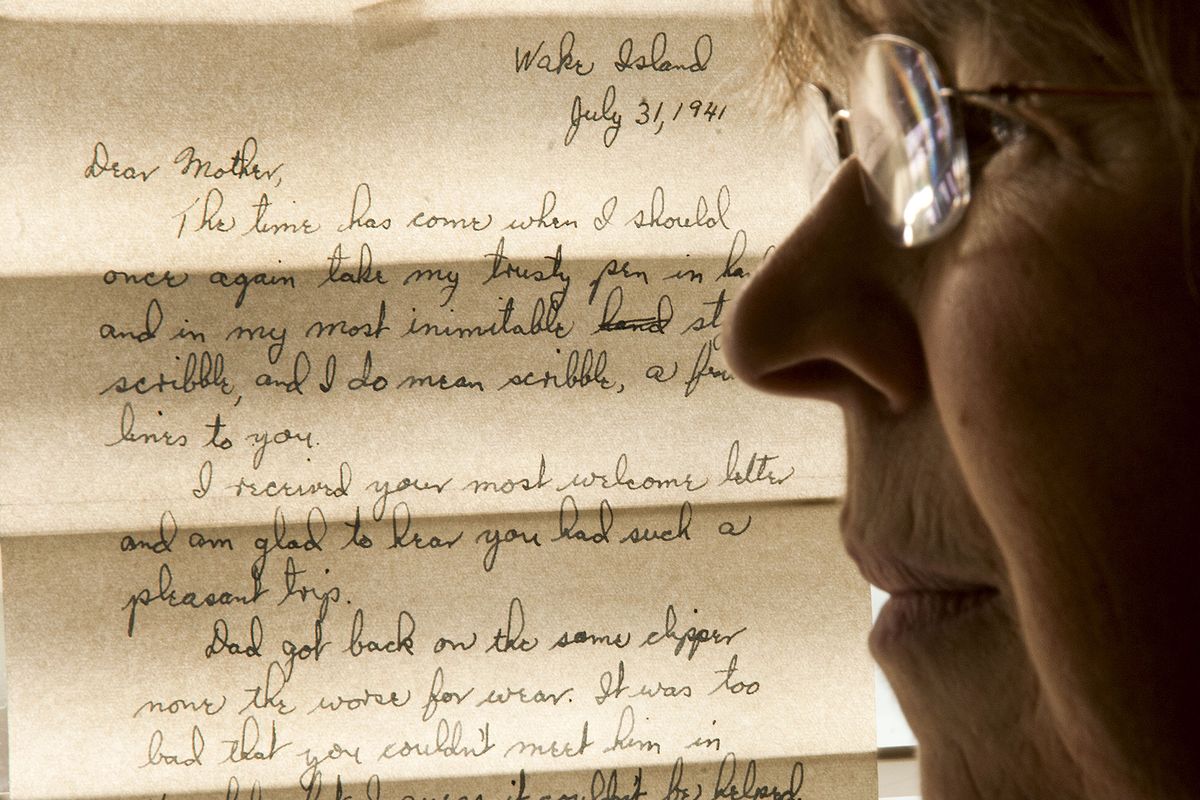 Wake Island
July 31, 1941
Dear Mother,
The time has come when I should
once again take my trusty pen in
and in my most inimitable hand
scribble, and I do mean scribble, a
lines to you.
I received your most welcome letter
and am glad to hear you had such a
pleasant trip.
Dad got back on the same clipper
none the worse for wear. It was too
bad that you couldn't meet him in
I guess it couldn't be helped.